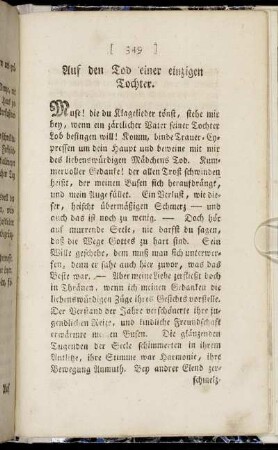 [ 349 ]
Auf den Tod einer einzigen
Tochter.
Muse! die du Klagelieder tönst, stehe mir
bey, wenn ein zärtlicher Vater seiner Tochter
Lob besingen will! Komm, binde Trauer-Cy-
pressen um dein Haupt und beweine mit mir
des liebenswürdigen Mädchens Tod. Kum-
mervoller Gedanke! der allen Trost schwinden
heißt, der meinen Busen sich heraufdrängt,
und mein Auge füllet. Ein Verlust, wie die-
ser, heische übermäßigen Schmerz — und
auch das ist noch zu wenig. — Doch hör
auf murrende Seele, nie darfst du sagen,
daß die Wege Gottes zu hart sind. Sein
Wille geschehe, dem muß man sich unterwer-
fen, denn er sahe auch hier zuvor, was das
Beste war. — Aber meine Liebe zerfließt doch
in Thränen, wenn ich meinen Gedanken die
liebenswürdigen Züge ihres Gesichts vorstelle.
Der Verstand der Jahre verschönerte ihre ju-
gendlichen Reitze, und kindliche Freundschaft
erwärmte meinen Busen. Die glänzenden
Tugenden der Seele schimmerten in ihrem
Antlitze, ihre Stimme war Harmonie, ihre
Bewegung Anmuth. Bey andrer Elend zer-
schmelz-